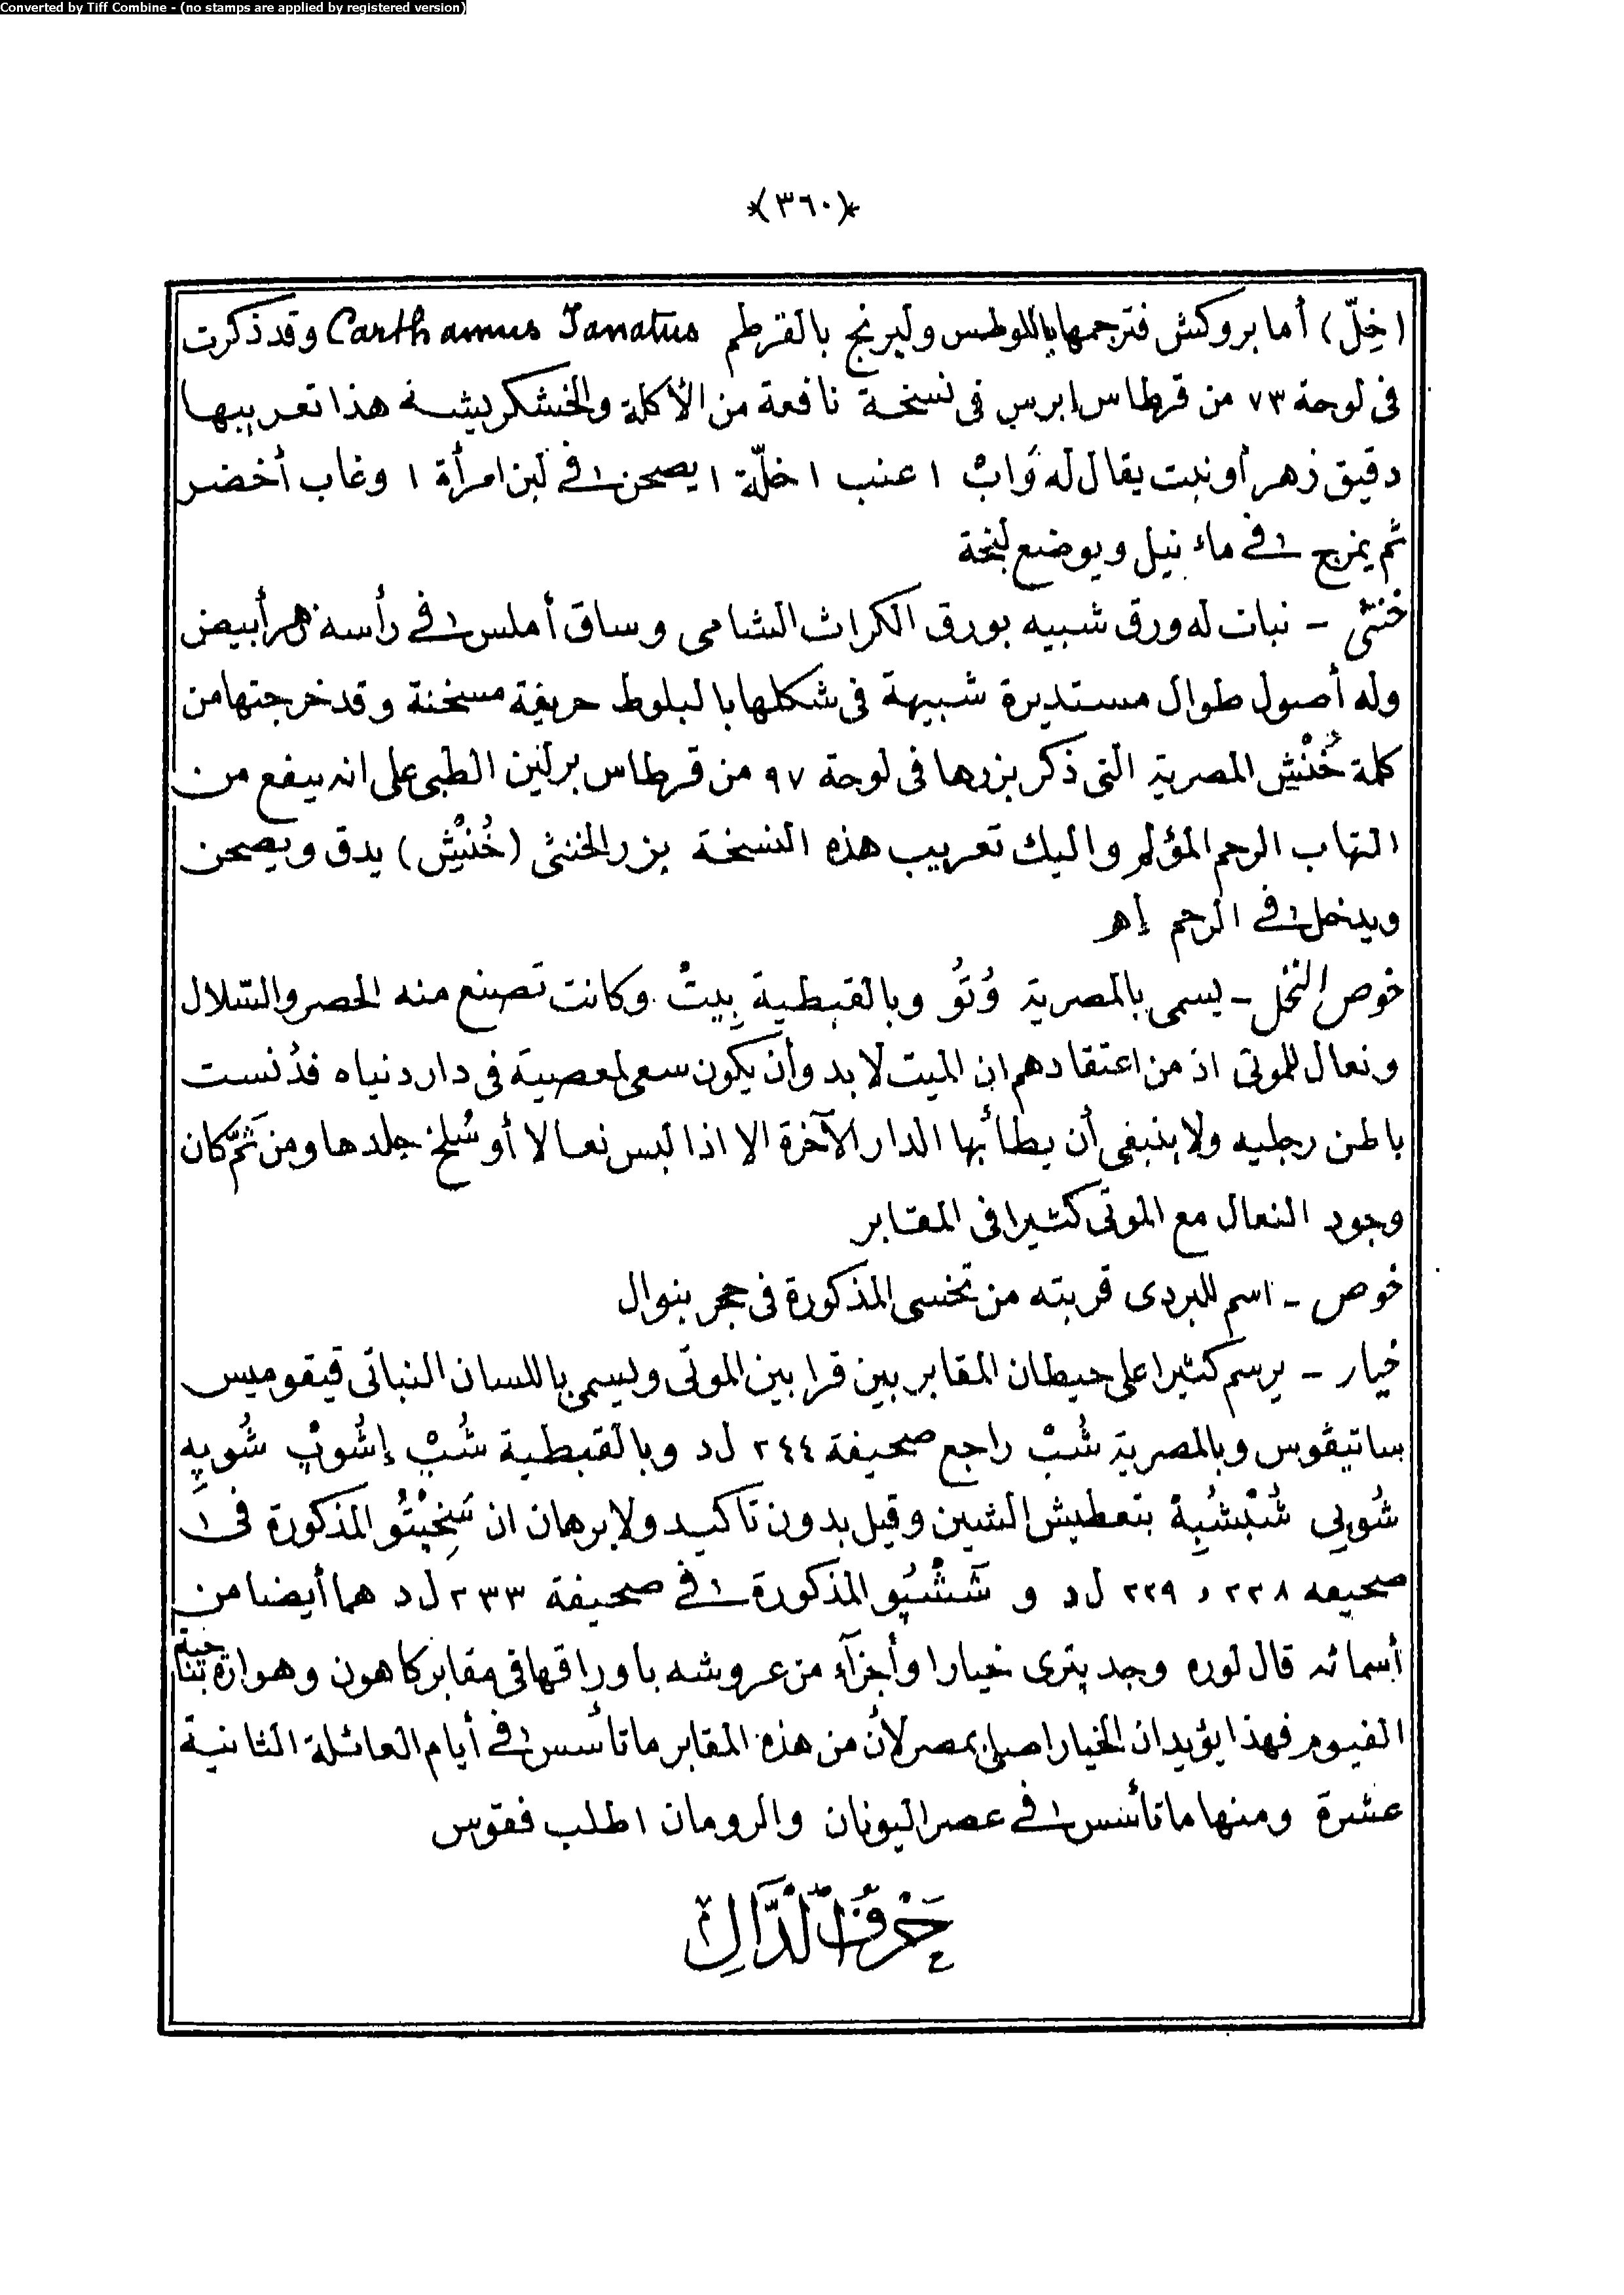 Converted by Tiff Combine - (no stamps are applied by registered version)
*(٣٦٠)*
(خِلّ) أما بروكش فترجمها باللوطس وليرنج بالقرطم Carthamus Tanatus وقد ذكرت
فى لوحة ٧٣ من قرطاس إبرس فى نسخة نافعة من الأكلة والخشكريشة هذا تعريبها
دقيق زهر أو نبت يقال له وَابْ ١ عنب ١ خلّة ١ يصحن فى لبن امرأة ١ وغاب أخضر
ثم يمزج فى ماء نيل ويوضع لبخة
خنثى - نبات له ورق شبيه بورق الكراث الشامى وساق أملس فى رأسه زهر أبيض
وله أصول طوال مستديرة شبيهة فى شكلها بالبلوط حريفة مسخنة وقد خرجتها من
كلمة خُنْتِش المصرية التى ذكر بزرها فى لوحة ٩٧ من قرطاس برلين الطبى على انه ينفع من
التهاب الرحم المؤلم واليك تعريب هذه النسخة بزر الخنثى (خُنْتِش) يدق ويصحن
ويدخل فى الرحم إهـ
خوص النخل - يسمى بالمصرية وُتُو وبالقبطية بِيتْ وكانت تصنع منه الحصر والسّلال
ونعال للموتى اذ من اعتقادهم ان الميت لا بد وأن يكون سعى لمعصية فى دار دنياه فدُنست
باطن رجليه ولا ينبغى أن يطأ بها الدار الآخرة الا اذا لبس نعالا أو سُلخ جلدها ومن ثمّ كان
وجود النعال مع الموتى كثيرا فى المقابر
خوص - اسم للبردى قربته من تخسى المذكورة فى حجر بنوال
خيار - يرسم كثيرا على حيطان المقابر بين قرابين الموتى ويسمى باللسان النباتى قيقوميس
ساتيڤوس وبالمصرية شُبْ راجع صحيفة ٢٤٤ ل د وبالقبطية شُبْ إشُوبْ شُوبِهِ
شُوبِى شُبْشُبِةْ بتعطيش الشين وقيل بدون تاكيد ولا برهان ان المذكورة فى
صحيفه ٢٢٨ و ٢٢٩ ل د و شَشْبُو المذكورة فى صحيفة ٢٣٣ ل د هما أيضا من
أسمائه قال لوره وجد پترى خيارا وأجزآء من عروشه باوراقها فى مقابر كاهون وهوارة بناحية
الفيوم فهذا يؤيد ان الخيار اصلى بمصر لأن من هذه المقابر ما تأسس فى أيام العائلة الثانية
عشرة ومنها ما تأسس فى عصر اليونان والرومان اطلب فقوس
حَرْفُ الدَّالِ